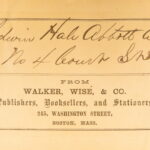 Edwin Hale Abbott
No 4 Court St
FROM
WALKER, WISE, & CO.
Publishers, Booksellers, and Stationers
245, WASHINGTON STREET,
BOSTON, MASS.